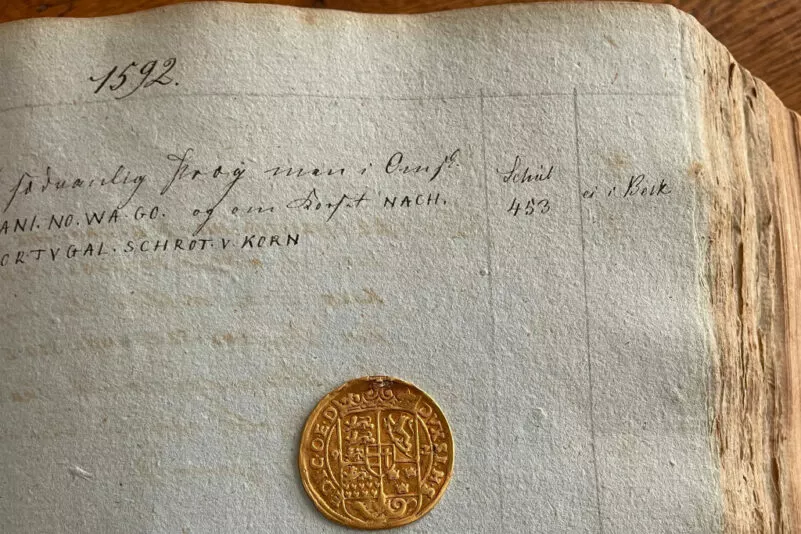 1592.
sædvanlig Præg men i Omsk:
ANI. NO. WA. GO. og om Korset NACH.
ORTVGAL. SCHROT. V. KORN
Schul
453
ei i Berk
D.G.O.E.D
DVX.SL.HS
9 2